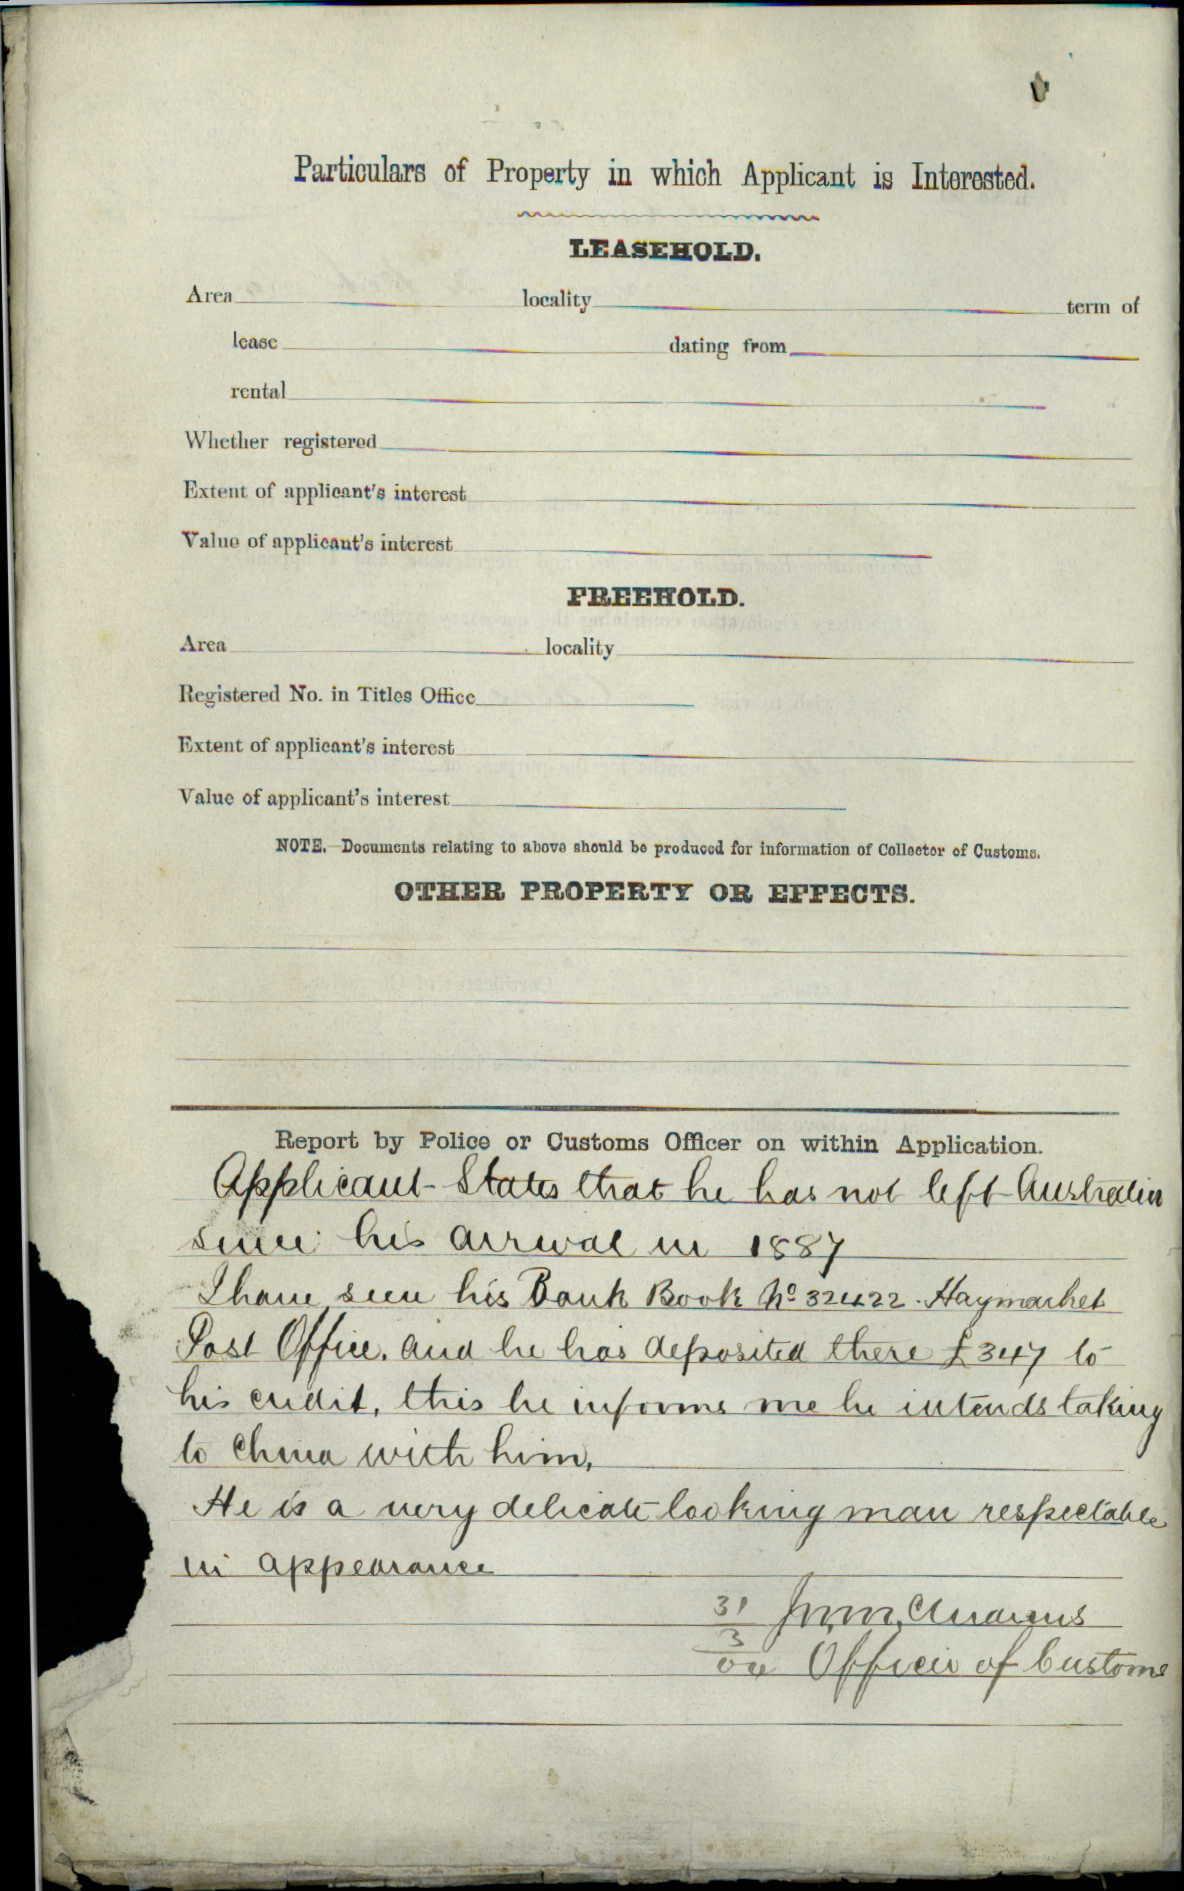 Particulars of Property in which Applicant is Interested.
LEASEHOLD.
Area locality term of
lease dating from
rental
Whether registered
Extent of applicant's interest
Value of applicant's interest
FREEHOLD.
Area locality
Registered No. in Titles Office
Extent of applicant's interest
Value of applicant's interest
NOTE.—Documents relating to above should be produced for information of Collector of Customs.
OTHER PROPERTY OR EFFECTS.
Report by Police or Customs Officer on within Application.
Applicant States that he has not left Australia
since his arrival in 1887
I have seen his Bank Book No 32422. Haymarket
Post Office. and he has deposited there £347 to
his credit, this he informs me he intends taking
to China with him,
He is a very delicate looking man respectable
in appearance
31
3
Officer of Customs